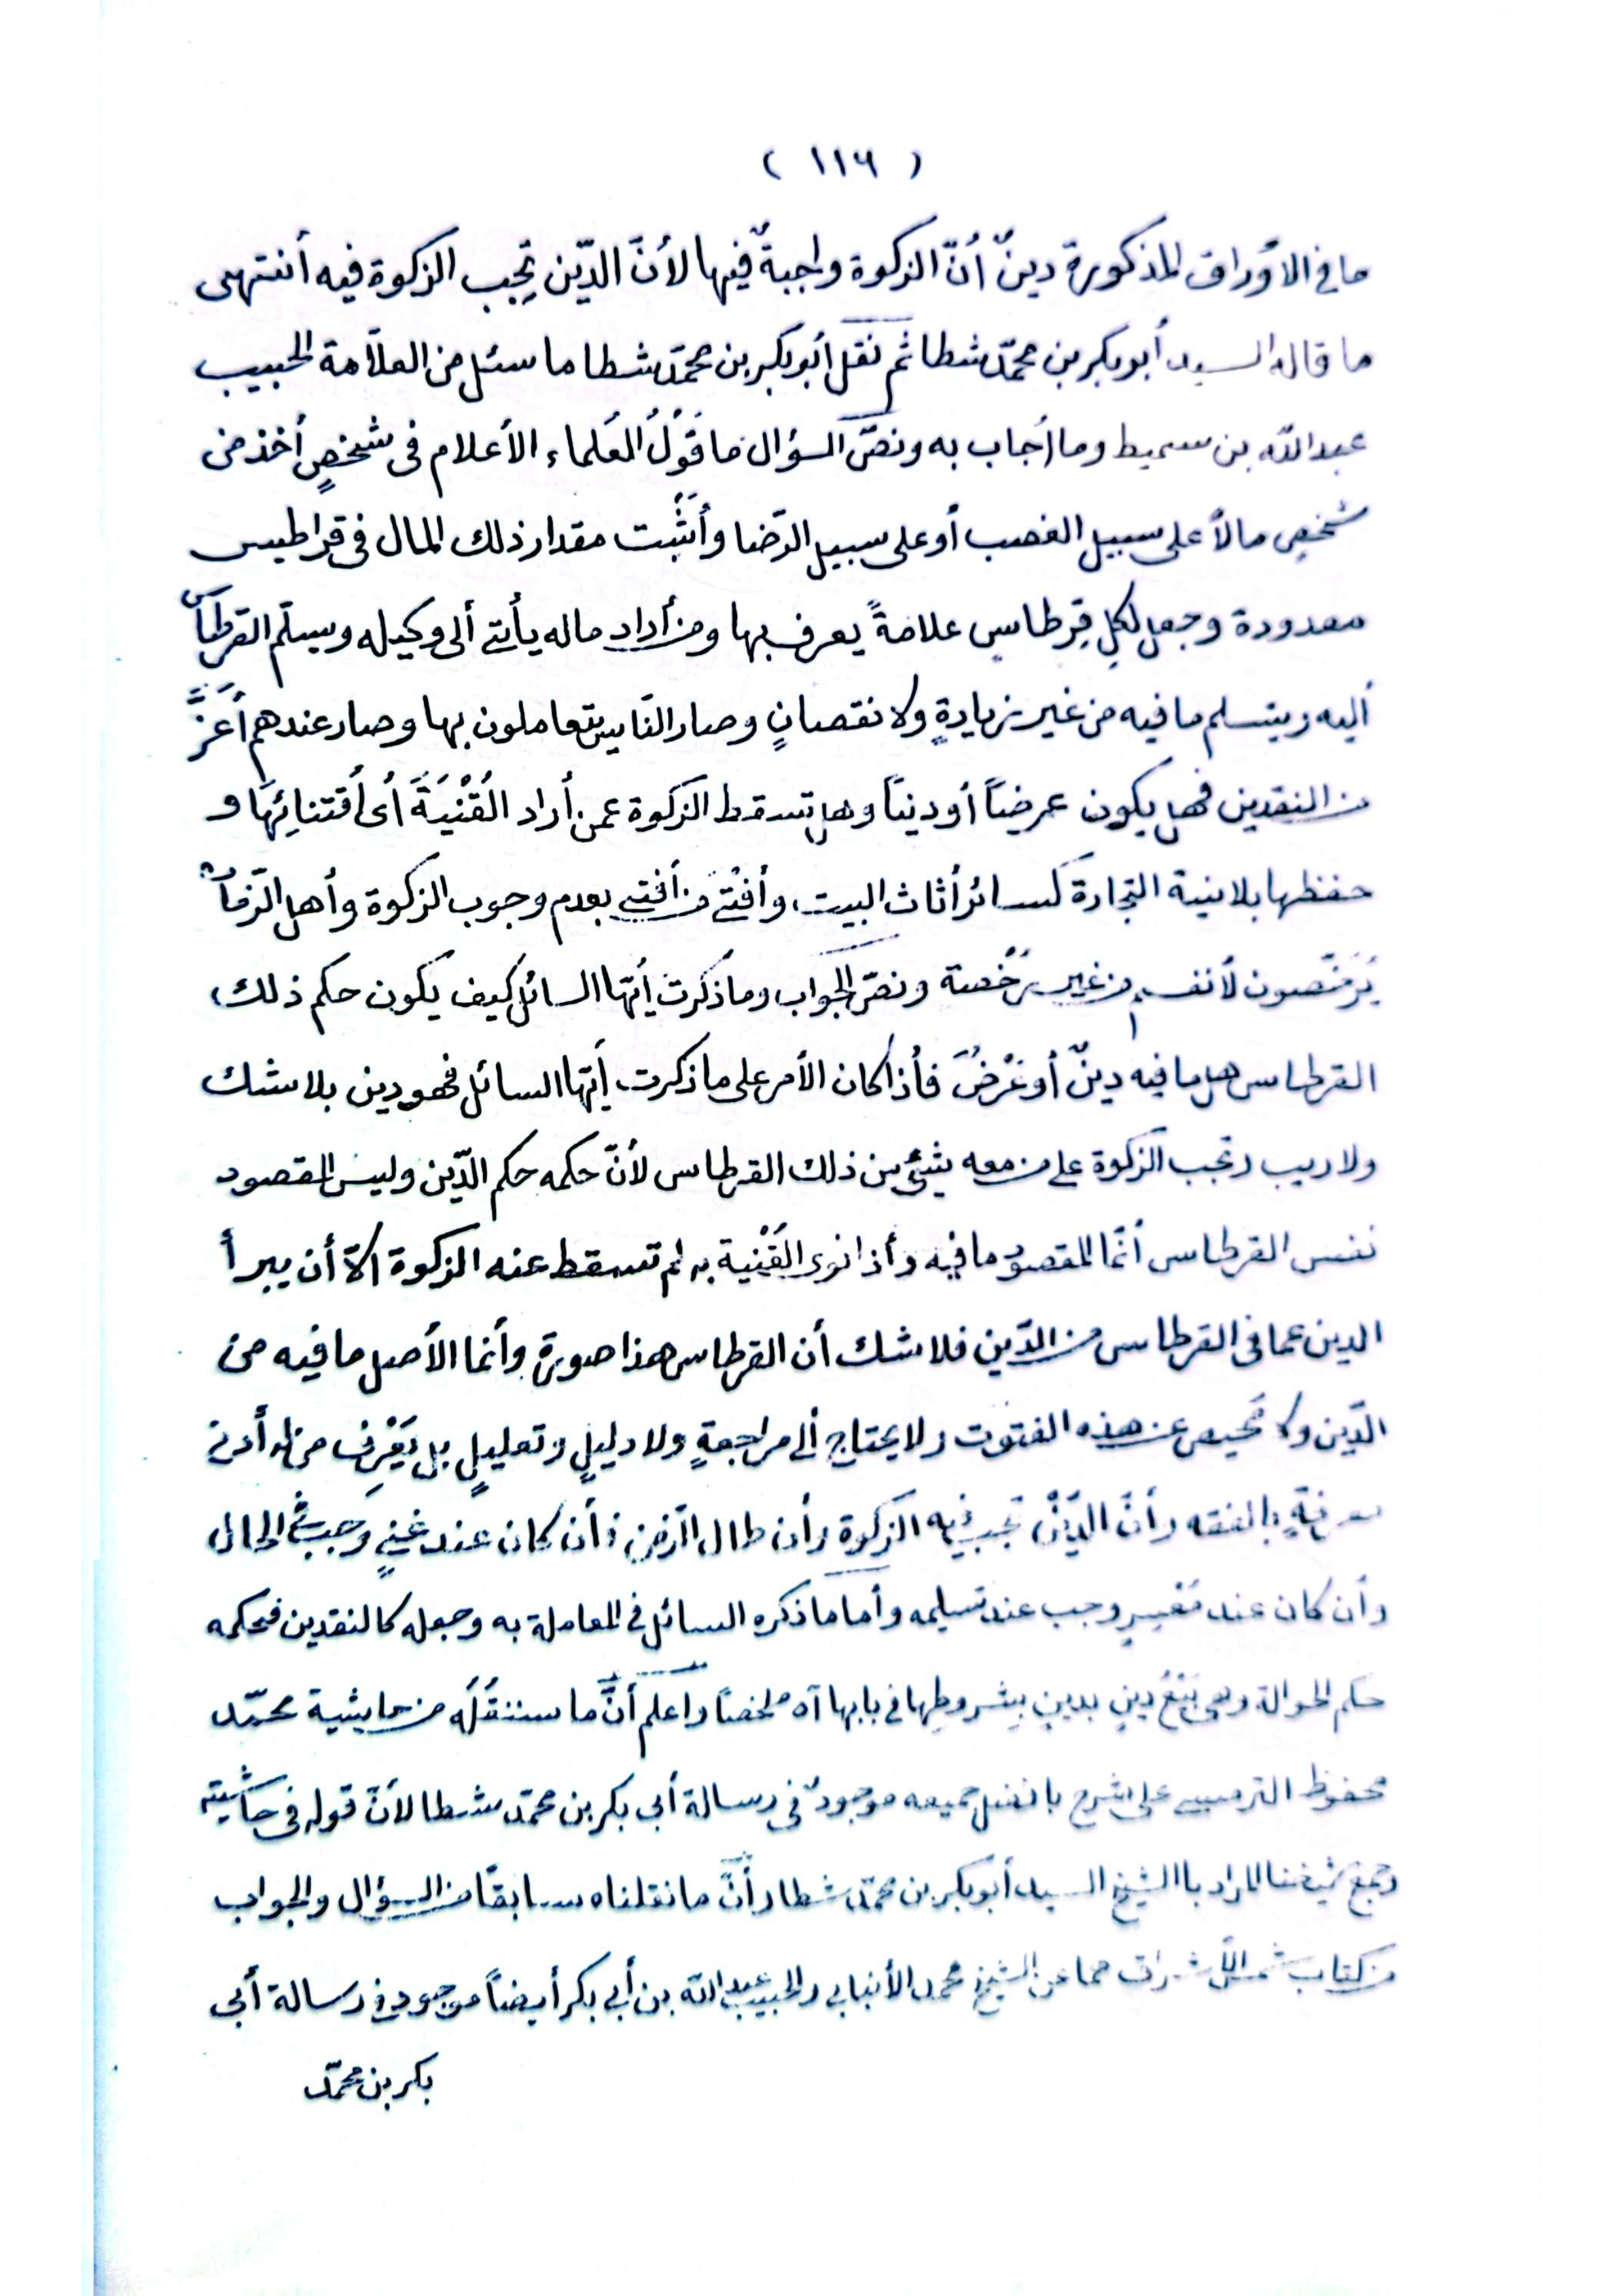 ( ١١٦ )
ما في الأوراق المذكورة دينٌ أنّ الزكوة واجبةٌ فيها لأنّ الدّين تجِب الزكوة فيه أنتهى
ما قاله السيد أبو بكر بن محمّد شطا ثم نقل أبو بكر بن محمّد شطا ما سئل من العلاّمة الحبيب
عبد اللّه بن سميط وما أجاب به ونصّ السؤال ما قَوْلُ العُلماء الأعلام فى شخصٍ أخذ من
شخصٍ مالاً على سبيل الغصب أو على سبيل الرّضا وأَثْبت مقدار ذلك المال فى قراطيس
معدودة وجعل لكلِ قِرطاسٍ علامةً يعرف بها ومن أراد ماله يأتي ألى وكيله ويسلّم القرطاس
أليه ويتسلم ما فيه من غير زيادةٍ ولا نقصانٍ وصار النّاس يتعاملون بها وصار عندهم أَعَزَّ
من النقدين فهل يكون عرضاً أو ديناً وهل تسقط الزكوة عمن أراد القُنْيَةَ أى أقتنائِها و
حفظها بلا نية التجارة كسائر أثاث البيت، وأفتى من أفتى بعدم وجوب الزكوة وأهل الزّمان
يُرَخّصون لأنفسهم من غير رُخْصة ونصّ الجواب وما ذكرت أيّها السائل كيف يكون حكم ذلك،
القرطاس هل ما فيه دينٌ أو عَرْضٌ فأذا كان الأمر على ما ذكرت أيّها السائل فهو دين بلا شك
ولا ريب وتجب الزكوة على من معه شيئ من ذلك القرطاس لأنّ حكمه حكم الدّين وليس المقصود
نفس القرطاس أنّما المقصود ما فيه وأذا نوى القُنْية به لم تسقط عنه الزكوة الاّ أن يبرأ
الدين عما فى القرطاس من الدّين فلا شك أن القرطاس هذا صورة وأنما الأصل ما فيه من
الدّين ولا مَحيص عن هذه الفتوت ولا يحتاج ألى مراجعةٍ ولا دليلٍ وتعليلٍ بل يَعْرِف من له أدنى
معرفةٍ بالفقه وأنّ الدّيْنَ تجب فيه الزكوة وأن طال الزّمن فأن كان عند غنيٍ وجبت فى الحال
وأن كان عند مُعْسِرٍ وجب عند تسليمه وأما ما ذكره السائل فى المعاملة به وجعله كالنقدين فحكمه
حكم الحوالة وهى بَيْعُ دينٍ بدينٍ بِشروطِها فى بابها آه ملخصاً وأعلم أنّ ما سننقُلُه من حاشية محمّد
محفوظ الترمسى على شرح بافضل جميعه موجودٌ فى رسالة أبى بكر بن محمّد شطا لأنّ قوله فى حاشيته
وجمع شيخنا المراد باالشيخ السيد أبو بكر بن محمّد شطا وأنّ ما نقلناه سابقاً من السؤال والجواب
من كتاب شمس الأشراق مما عن الشيخ محمد الأنبابى والحبيب عبد اللّه بن أبى بكر أيضاً موجود فى رسالة أبى
بكر بن محمّد